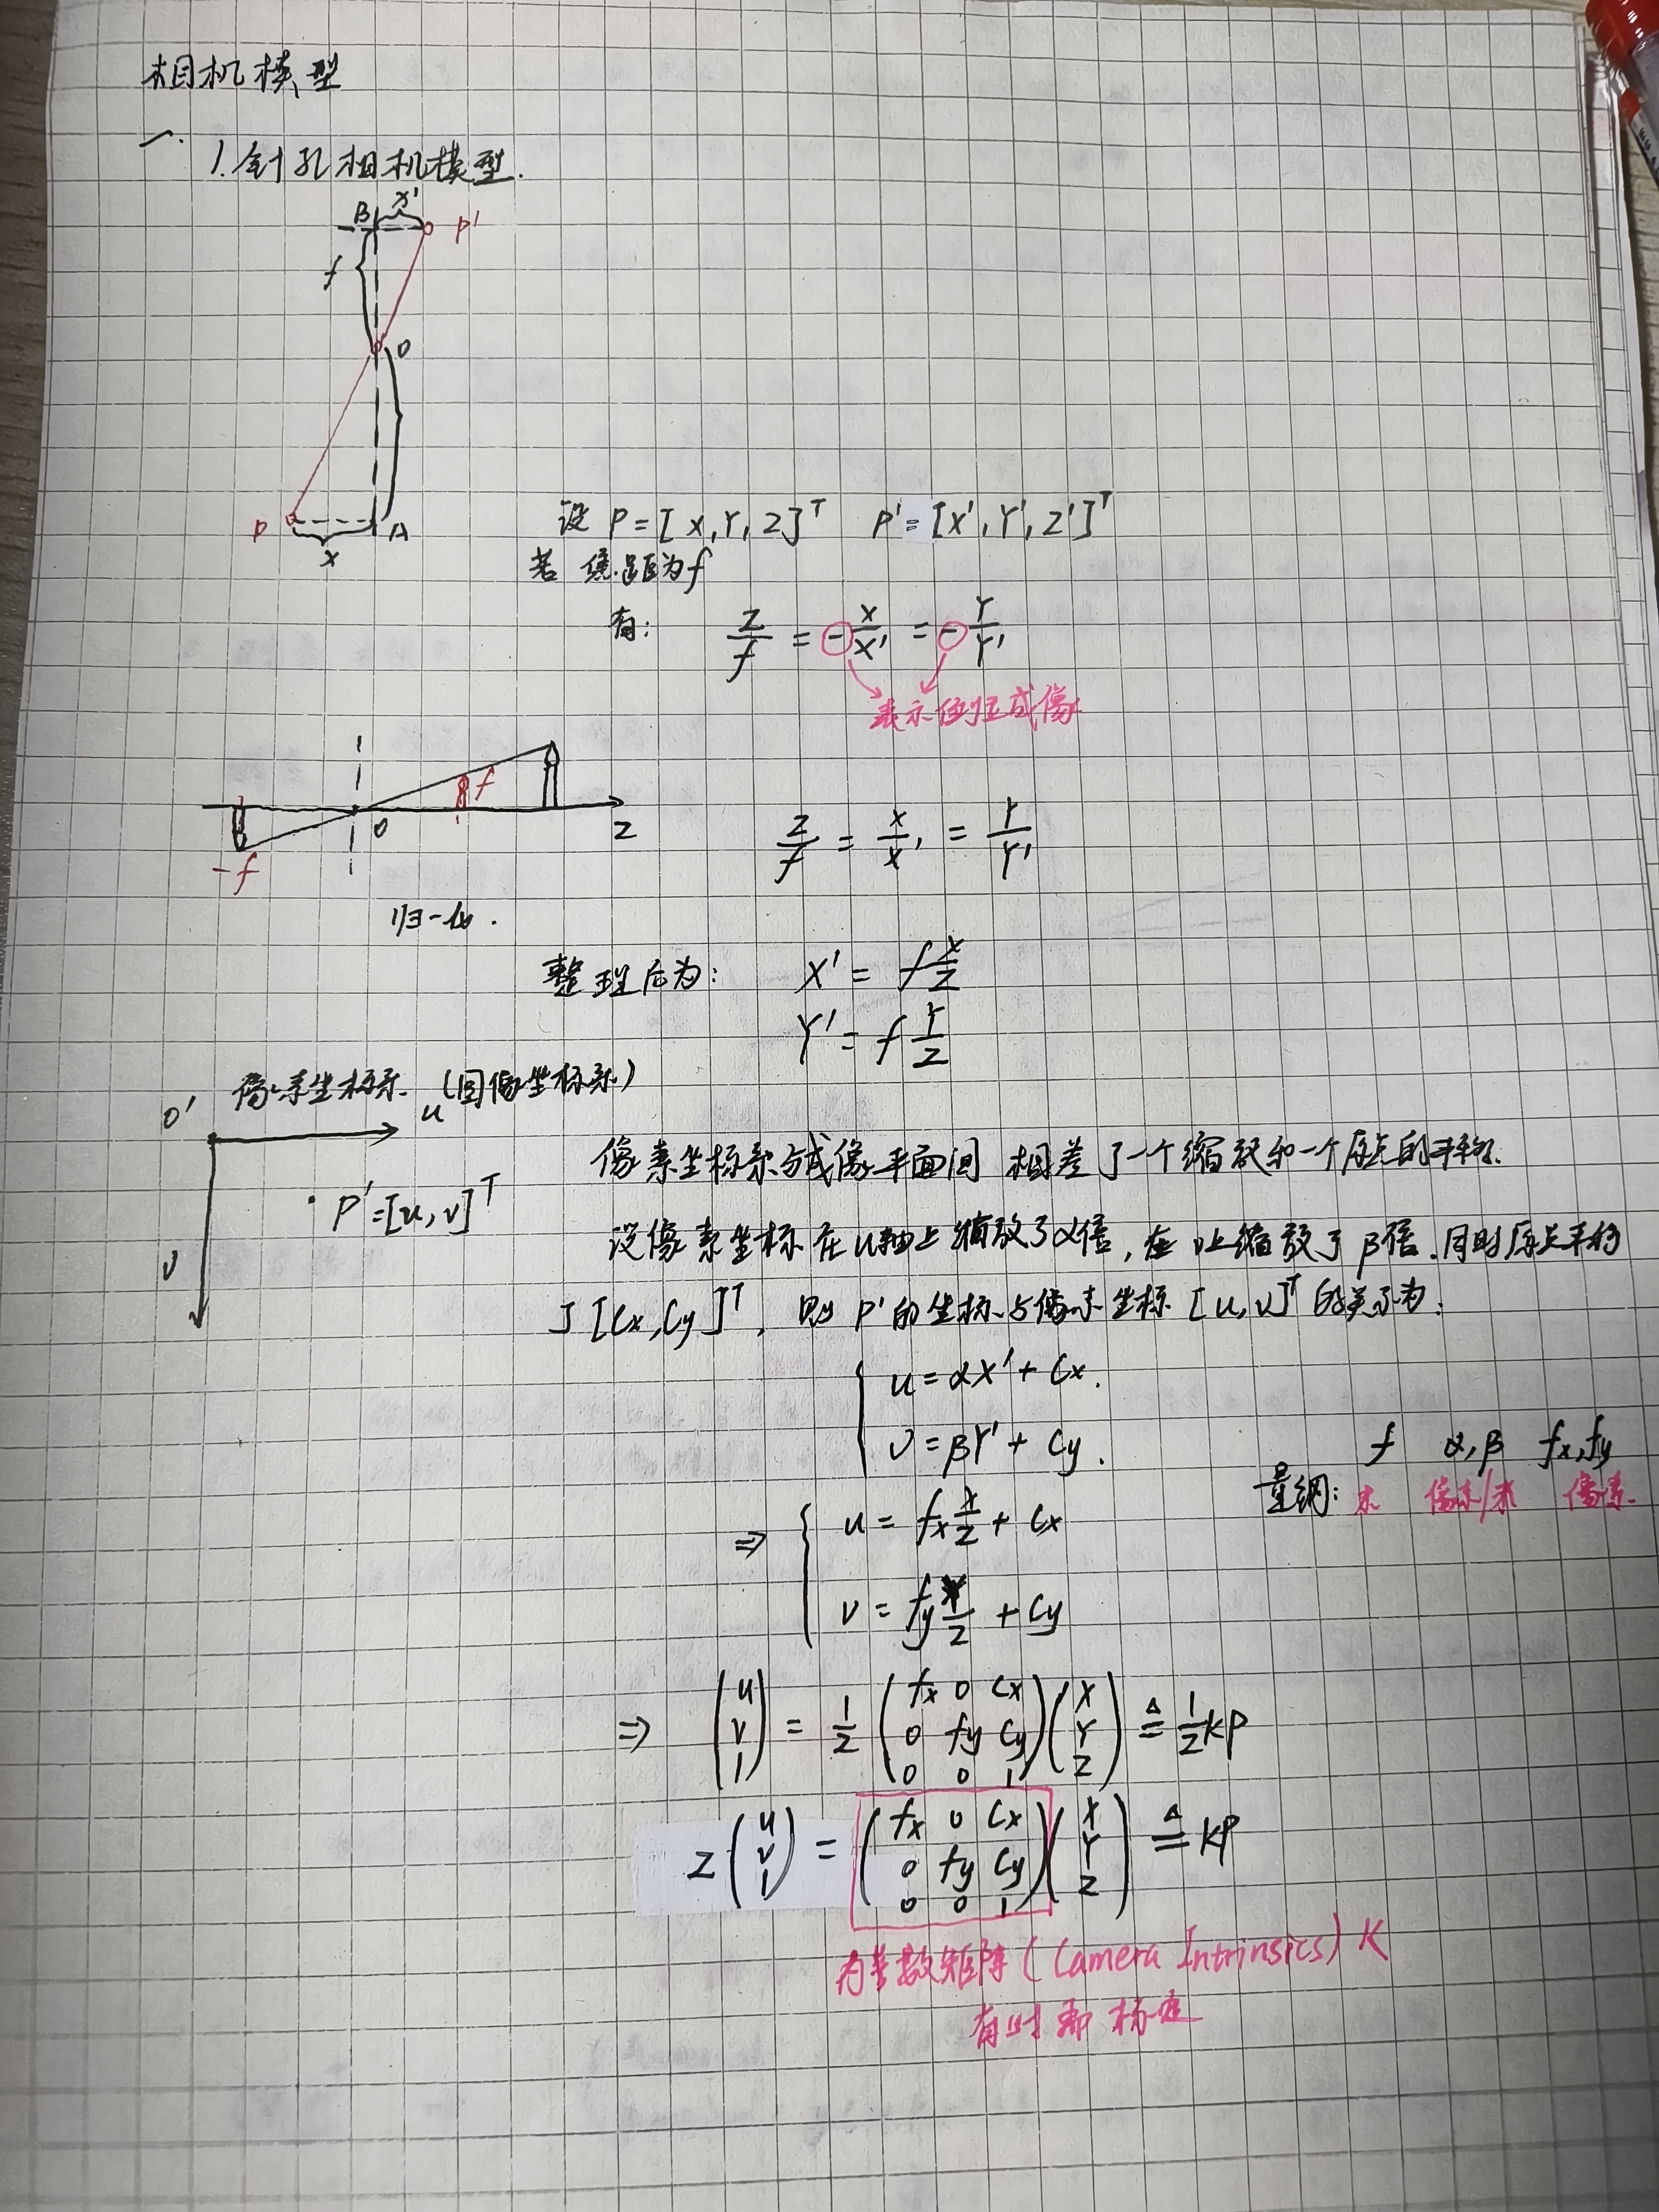 相机模型
一.
1.针孔相机模型.
B x' P'
f
O
P A
x
设 P=[X,Y,Z]ᵀ P'=[X',Y',Z']ᵀ
若焦距为f
有: Z/f = -X/X' = -Y/Y'
表示倒立成像
f
O Z
-f
Z/f = X/X' = Y/Y'
归一化.
整理后为: X' = f X/Z
Y' = f Y/Z
像素坐标系 (图像坐标系)
O' u
P'=[u,v]ᵀ
v
像素坐标系与成像平面间 相差了一个缩放和一个原点的平移.
设像素坐标在u轴上缩放了α倍,在v上缩放了β倍.同时原点平移
了[Cx,Cy]ᵀ, 则 P'的坐标与像素坐标[u,v]ᵀ的关系为:
u=αX'+Cx.
v=βY'+Cy.
f α,β fx,fy
量纲: 米 像素/米 像素.
⇒ u = fx X/Z + Cx
v = fy Y/Z + Cy
⇒ (u v 1) = 1/Z (fx 0 Cx 0 fy Cy 0 0 1) (X Y Z) ≜ 1/Z KP
Z (u v 1) = (fx 0 Cx 0 fy Cy 0 0 1) (X Y Z) ≜ KP
内参数矩阵 (Camera Intrinsics) K
有时 标定